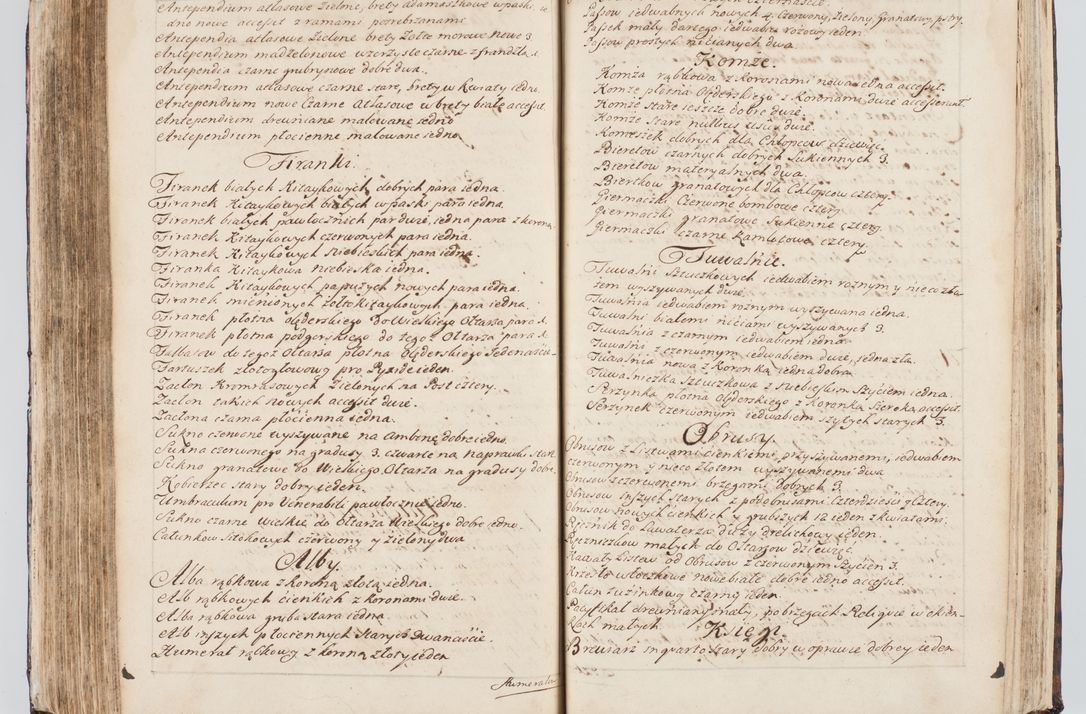 Antependium atłasowe Zielone, brety adamaszkowe w paski, ie
dno nowe accessit z ramami potrzebzanami
Antependia atłasowe Zielone brety żołte morowe nowe 3
Antependium madzelonowe wzorzyste czarne z frandzlą 1.
Antependia czarne grubrynowe dobre dwa.
Antependium atłasowe czarne stare, brety w kwiaty iedn.
Antependium nowe Czarne Atłasowe w brety białe accessit
Antependium drewniane malowane iedno
Antependium płocienne malowane iedno
Firanki.
Firanek białych Kitaykowych dobrych para iedna
Firanek Kitaykowych białych w paski para iedna.
Firanek białych pawłocznich par dwie, iedna para z koroną
Firanek Kitaykowych czerwonych para iedna.
Firanek Kitaykowych niebieskich para iedna.
Firanka Kitaykowa niebieska iedna.
Firanek Kitaykowych papużych nowych para iedna.
Firanek mienionych żołto Kitaykowych para iedna
Firanek płotna Olęderskiego Do Wielkiego Ołtarza para 1.
Firanek płotna podgorskiego do tegoż Ołtarza para 1.
Falbasow do tegoż Ołtarza płotna Olęderskiego Iedenaście
Fartuszek złotogłowowy pro Pyxide ieden
Zasłon Kromrasowych Zielonych na Post cztery.
Zasłon takich nowych accessit dwie.
Zasłona czarna płocienna iedna.
Sukno czerwone wyszywane na Ambonę dobre iedno
Sukna czerwonego na gradusy 3. czwarte na naprawki star.
Sukno granatowe do Wielkiego Ołtarza na gradusy dobre
Kobierzec stary dobry ieden.
Umbraculum pro Venerabili pawłoczne iedno.
Sukno czarne wielkie do Ołtarza Wielkiego dobre iedno.
Całunkow Sitokowych czerwony y zielony dwa
Alby
Alba rąbkowa z koroną złotą iedna.
Alb rąbkowych cienkich z koronami dwie.
Alba rąbkowa gruba stara iedna
Alb inszych płociennych starych dwanaście.
Humerał rąbkowy z koroną złoty ieden
Humerała
Pasow iedwabnych nowych 4. czerwony, zielony, granatowy, pstry.
Pasek mały dartego iedwabiu rozowy ieden
Pasow prostych nicianych dwa
Komże.
Komża rąbkowa z koronami nowa iedna accessit.
Komże płotna Olęderskiego z koronami dwie accesserunt
Komże stare ieszcze dobre dwie.
Komże stare nullius usus dwie.
Komeszek dobrych dla Chłopcow dziewięć
Bieretow czarnych dobrych Sukiennych 3.
Bieretow materyalnych dwa
Bieretkow granatowych dla Chłopcow cztery.
Giermaczki Czerwone bombowe cztery
Giermaczki granatowe Sukienne cztery.
Giermaczki czarne Kamlotowe cztery
Tuwalnie.
Tuwalni Sztuczkowych iedwabiem roznym y nieco zło
tem wyszywanych dwie.
Tuwalnia iedwabiem roznym wyszywana iedna.
Tuwalni białemi niciami wyszywanych 3.
Tuwalnia z czarnym iedwabiem iedna
Tuwalni z czerwonym iedwabiem dwie, iedna zła.
Tuwalnia nowa z koronką iedna dobra
Tuwalnieczka Sztuczkowa z niebieskim Szyciem iedna.
Serzynka płotna Olęderskiego z koronką szeroką accessit.
Serzynek czerwonym iedwabiem szytych starych 3.
Obrusy.
Obrusow z Listwami cienkiemi, przyszywanemi, iedwabiem
czerwonym y nieco złotem wyszywanemi dwa
Obrusow z czerwonemi brzegami dobrych 3.
Obrusow inszych starych z podobrusami Czterdzieści y Cztery.
Obrusow nowych cienkich y grubszych 12 ieden z kwiatami.
Ręcznik do Lawaterza duży drelichowy ieden.
Ręczniczkow małych do Ołtarzow dziewięć
Kawały Listew od Obrusow z czerwonym Szyciem 3.
Krzesło włoczkowe nowe białe dobre iedno accessit.
Całun tuzinkowy czarny ieden.
Pacyfikał drewniany mały, po brzegach Religiue w okien-
kach małych. Księgi.
Brewiarz in quarto stary dobry w oprawie dobrey ieden